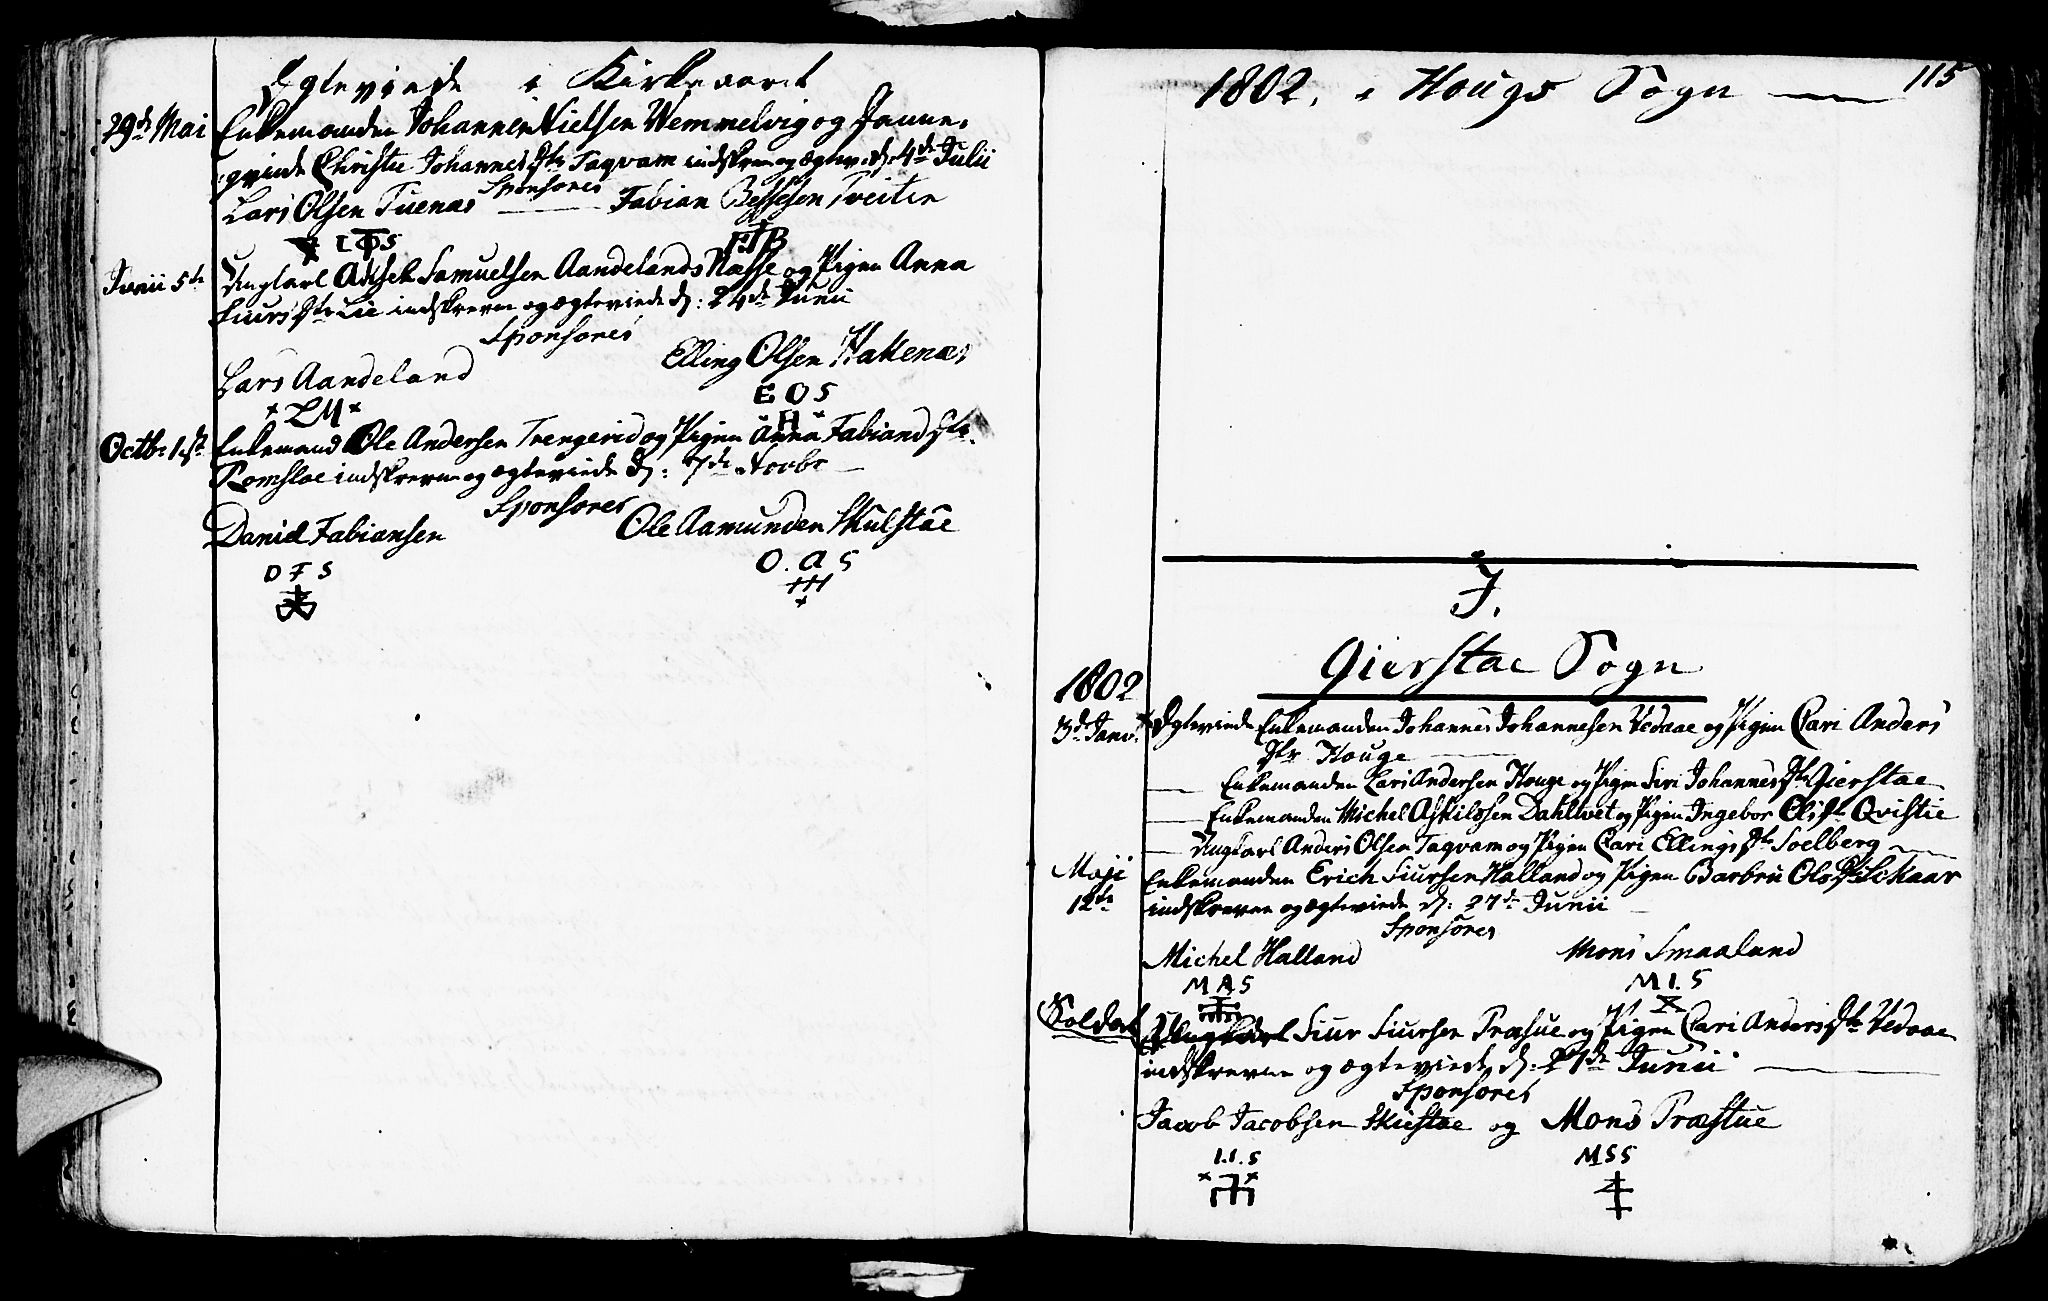 Egteviede i Kirkeaaret
29de Mai Enkemanden Johannes Nielsen Hemmelvig og Danne-
qvinde Christie Johannes Dtr Tagvam indskrevne og ægtev: d: 4de Julii
Sponsores
Lars Olsen Tuenæs — Fabian Bessesen Tveiten
LOS FTB
Junii 5te Ungkarl Aksel Samuelsen Aandelands Næsse og Pigen Anna
Siurs Dtr Lie indskrevne og ægteviede d: 24de Junii
Sponsores
Lars Aandeland Elling Olsen Hakenæs
LM EOS
H
Octb: 1ste Enkemand Ole Andersen Trengerid og Pigen Anna Fabians Dtr
Romslae indskrevne og ægteviede d: 7de Novbr —
Sponsores
Daniel Fabiansen Ole Aamunden Skulstae
D F S O. A S
115
1802. i Hougs Sogn —
I.
Gierstae Sogn
1802
3de Janv: Egteviede Enkemanden Johannes Johannesen Vedaae og Pigen Cari Anders
Dtr Houge —
— Enkemanden Lars Andersen Houge og Pigen Siri Johannes Dtr Gierstae
— Enkemanden Michel Askilssen Dahlvet og Pigen Ingebor Ols Dtr Qvistie
— Ungkarl Anders Olsen Tagvam og Pigen Cari Ellings Dtr Soelberg —
Maji Enkemanden Erich Siursen Halland og Pigen Barbru Ols Dtr Schaar
12te indskrevne og ægteviede d: 27de Junii —
Sponsores
Michel Halland Mons Smaaland
M A S M I. S
Soldat Ungkarl Siur Siursen Præstue og Pigen Cari Anders Dtr Vedaae
indskrevne og ægteviede d: 27de Junii —
Sponsores
Jacob Jacobsen Skiestae og Mons Præstue
I. I. S MSS